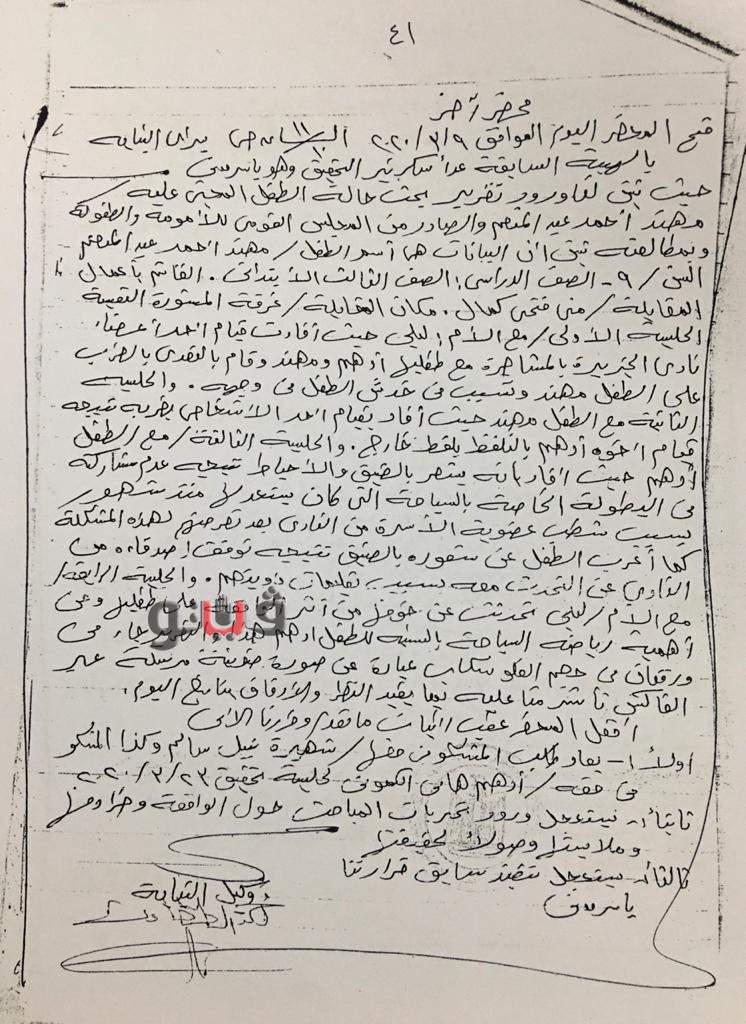 ٤١
محضر آخر
فتح المحضر اليوم الموافق ٢٠٢٠/٣/٩ الساعة ص بسراى النيابة
بالهيئة السابقة عدا سكرتير التحقيق وهو ياسر
حيث ثبت لنا ورود تقرير بحث حالة الطفل المجنى عليه
مهند أحمد عبد المنعم والصادر من المجلس القومى للأمومة والطفولة
وبمطالعته ثبت ان البيانات هى أسم الطفل / مهند احمد عبد المنعم
السن / ٩ - الصف الدراسى: الصف الثالث الأبتدائى . القائم بأعمال
المقابلة / منى فتحى كمال . مكان المقابلة / غرفة المشورة النفسية
الجلسة الأولى / مع الأم : ليلى حيث أفادت قيام احد أعضاء
نادى الجزيرة بالمشاجرة مع طفليها أدهم ومهند وقام بالتعدى بالضرب
على الطفل مهند وتسبب فى خدش الطفل فى وجهه . والجلسه
الثانية مع الطفل مهند حيث أفاد بقيام احد الأشخاص بضربه نتيجه
قيام اخوه أدهم بالتلفظ بلفظ خارج . والجلسة الثالثة / مع الطفل
أدهم حيث افاد بأنه يشعر بالضيق والأحباط نتيجه عدم مشاركته
فى البطولة الخاصة بالسباحة التى كان يستعد لها منذ شهور
بسبب شطب عضوية الأسرة من النادى بعد تعرضهم لهذه المشكلة
كما أعرب الطفل عن شعوره بالضيق نتيجه توقف اصدقاءه من
النادى عن التحدث معه بسبب تعليمات ذويهم . والجلسة الرابعة /
مع الأم / ليلى تحدثت عن خوفها من أثر على طفليها وعن
أهمية رياضة السباحة بالنسبه للطفل أدهم هذا والتقرير جاء فى
ورقتان فى حجم الفلوسكاب عبارة عن صورة ضوئية مرسلة عبر
الفاكس تأشر منا عليه بما يفيد النظر والأرفاق بتاريخ اليوم .
أقفل المحضر عقب اثبات ما تقدم وقررنا الاتى
اولاً :- يعاد طلب المشكو فى حقها / شهيرة نبيل سالم وكذا المشكو
فى حقه / أدهم هانى الكمونى لجلسة تحقيق ٢٠٢٠/٣/٢٣
ثانياً :- يستعجل ورود تحريات المباحث حول الواقعة وظروفها
وملابساتها وصولاً لحقيقتها
ثالثاً :- يستعجل تنفيذ سابق قراراتنا
ياسر
وكيل النيابة
ڤيتو